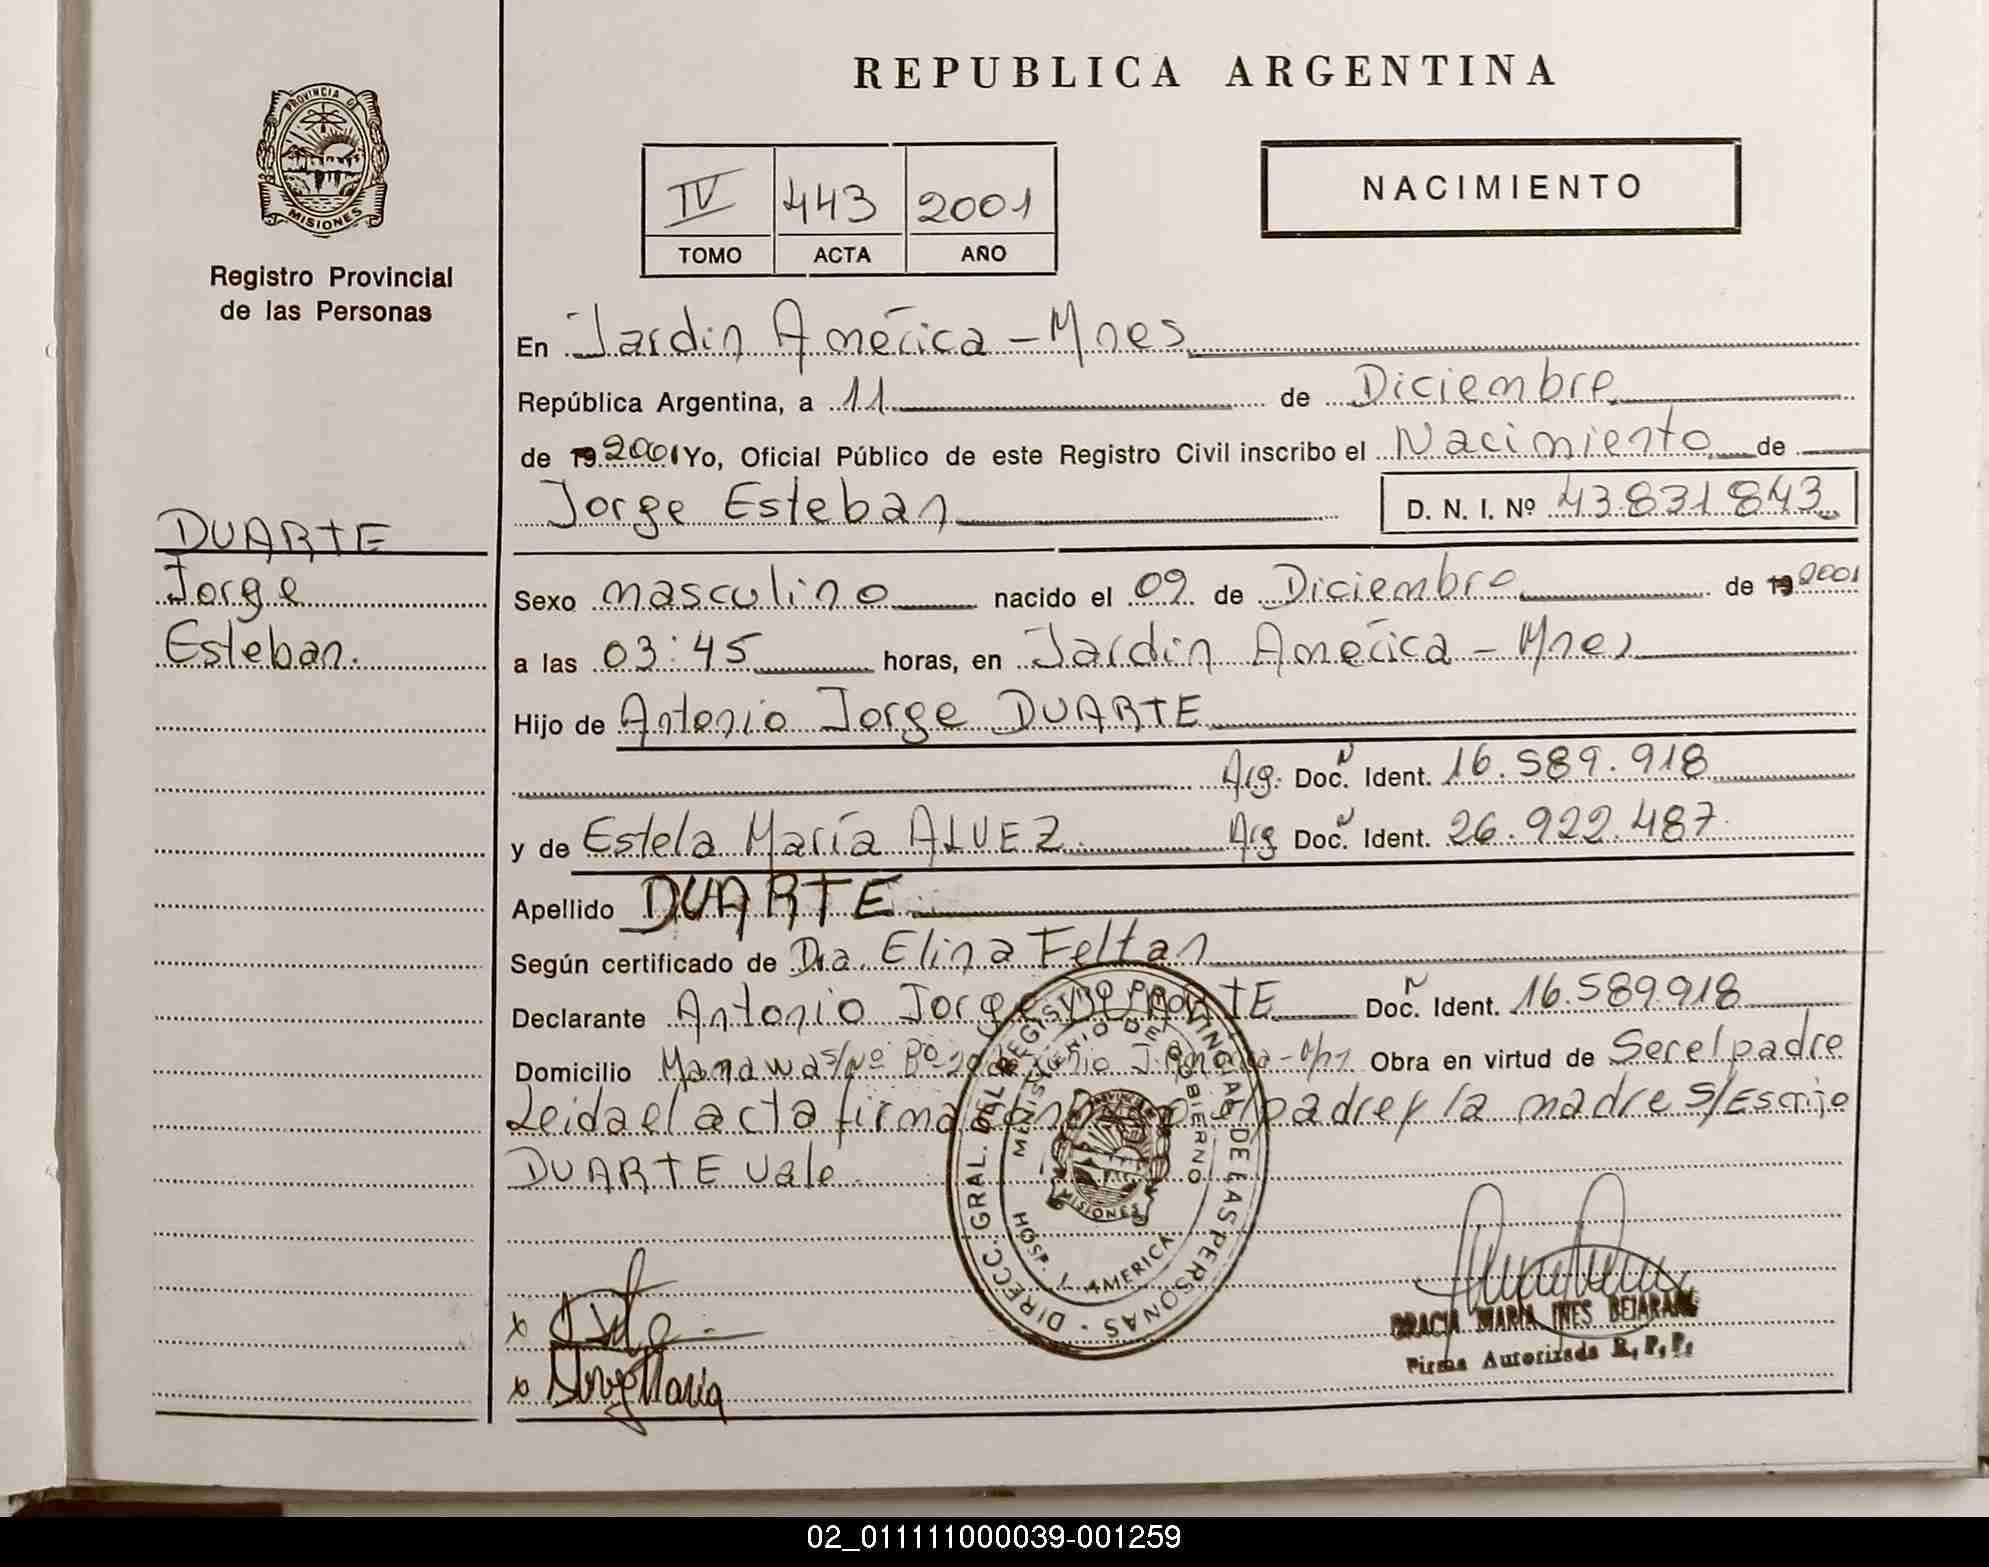 PROVINCIA DE
MISIONES
Registro Provincial
de las Personas
DUARTE
Jorge
Esteban.
REPUBLICA ARGENTINA
IV 443 2001
TOMO ACTA AÑO
NACIMIENTO
En Jardin América - Mnes
República Argentina, a 11 de Diciembre
de 19 2001 Yo, Oficial Público de este Registro Civil inscribo el Nacimiento de
Jorge Esteban D. N. I. Nº 43.831843
Sexo masculino nacido el 09 de Diciembre de 19 2001
a las 03:45 horas, en Jardin América - Mnes
Hijo de Antonio Jorge DUARTE
Arg. Doc. N Ident. 16.589.918
y de Estela María ALVEZ Arg Doc. N Ident. 26.922.487
Apellido DUARTE
Según certificado de Dra. Elina Feltan
Declarante Antonio Jorge DUARTE Doc. N Ident. 16.589918
Domicilio s/nº Obra en virtud de Ser el padre
Leida el acta firma el padre y la madre S/Escrijo
DUARTE Vale
DIRECC. GRAL. DEL REGISTRO PROVINCIAL DE LAS PERSONAS
MINISTERIO DE GOBIERNO
PROVINCIA
MISIONES
HOSP. J. AMERICA
x
x María
GRACIA MARIA INES BEJARANO
Firma Autorizada R. P. P.
02_011111000039-001259